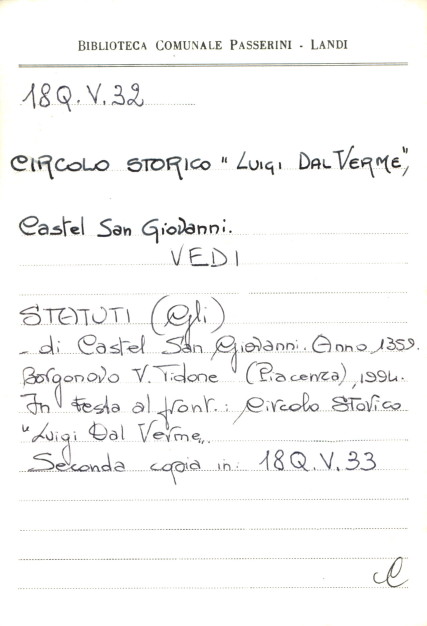 BIBLIOTECA COMUNALE PASSERINI - LANDI
18Q.V.32
CIRCOLO STORICO "LUIGI DAL VERME",
Castel San Giovanni.
VEDI
STATUTI (Gli)
- di Castel San Giovanni. Anno 1359.
Borgonovo V. Tidone (Piacenza), 1994.
In testa al front.: Circolo Storico
"Luigi Dal Verme".
Seconda copia in: 18Q.V.33